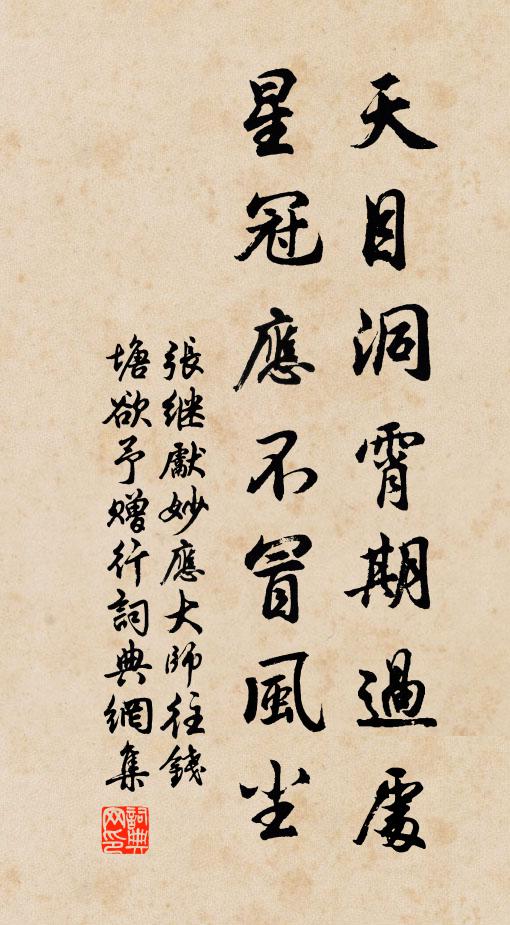 天目洞霄期過處
星冠應不冒風尘
張继獻妙應大師往錢
塘欲予赠行詞典網集
詞典网印